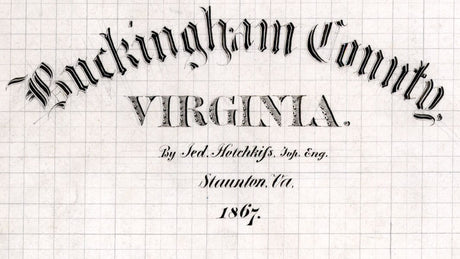 Buckingham County,
VIRGINIA.
By Jed. Hotchkiſs, Top. Eng.
Staunton, Va.
1867.